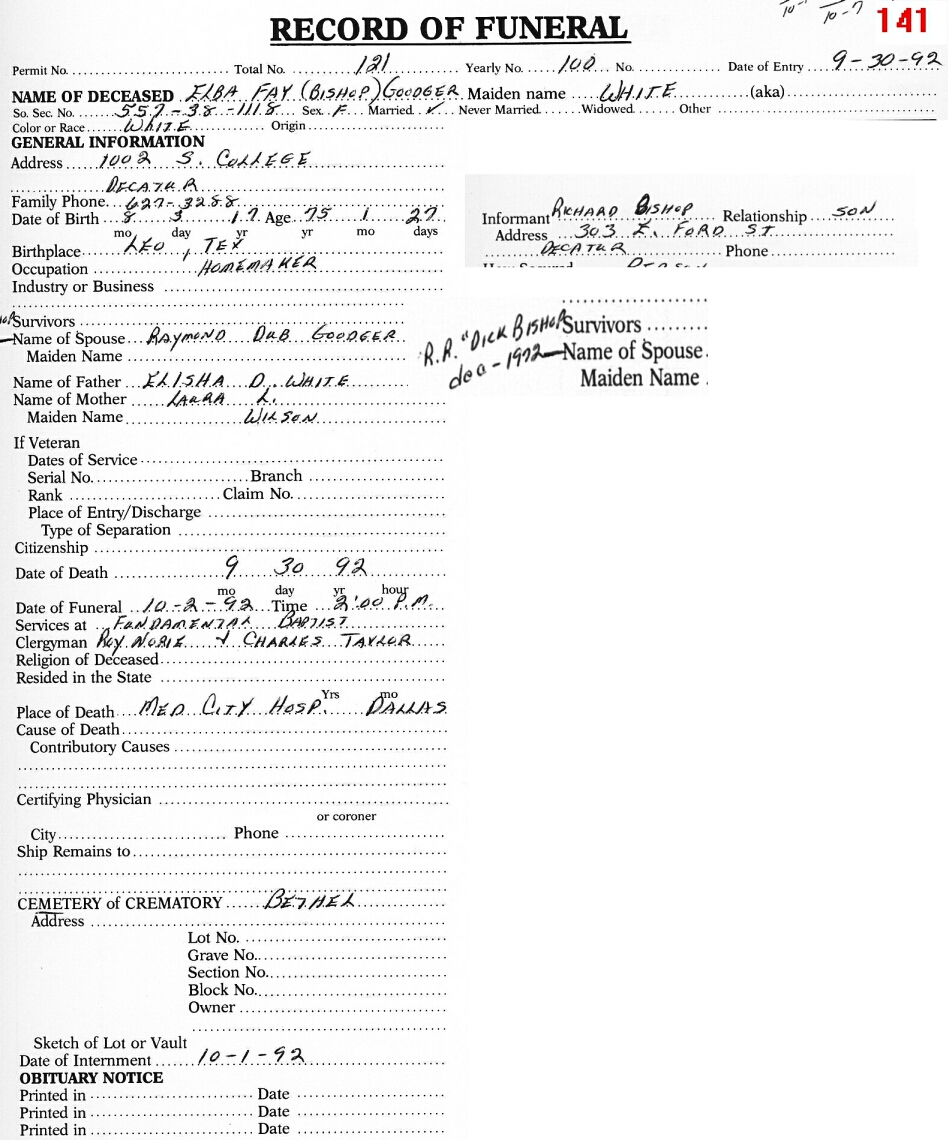 10-7 141
RECORD OF FUNERAL
Permit No. Total No. 121 Yearly No. 100 No. Date of Entry 9-30-92
NAME OF DECEASED ELBA FAY (BISHOP) GOODGER Maiden name WHITE (aka)
So. Sec. No. 557-38-1118 Sex F Married ✓ Never Married Widowed Other
Color or Race WHITE Origin
GENERAL INFORMATION
Address 1002 S. COLLEGE
DECATUR
Family Phone 627-3288
Date of Birth 8 3 17 Age 75 1 27
mo day yr yr mo days
Birthplace LEO, TEX
Occupation HOMEMAKER
Industry or Business
Informant RICHARD BISHOP Relationship SON
Address 303 E. FORD ST
DECATUR Phone
Survivors
Name of Spouse RAYMOND DUB GOODGER
Maiden Name
R.R. "DICK BISHOP Survivors
dec - 1972 Name of Spouse
Maiden Name
Name of Father ELISHA D. WHITE
Name of Mother LAURA L.
Maiden Name WILSON
If Veteran
Dates of Service
Serial No. Branch
Rank Claim No.
Place of Entry/Discharge
Type of Separation
Citizenship
Date of Death 9 30 92
mo day yr hour
Date of Funeral 10-2-92 Time 2:00 P.M.
Services at FUNDAMENTAL BAPTIST
Clergyman ROY NOBLE & CHARLES TAYLOR
Religion of Deceased
Resided in the State
Yrs mo
Place of Death MED CITY HOSP. DALLAS
Cause of Death
Contributory Causes
Certifying Physician
or coroner
City Phone
Ship Remains to
CEMETERY of CREMATORY BETHEL
Address
Lot No.
Grave No.
Section No.
Block No.
Owner
Sketch of Lot or Vault
Date of Internment 10-1-92
OBITUARY NOTICE
Printed in Date
Printed in Date
Printed in Date